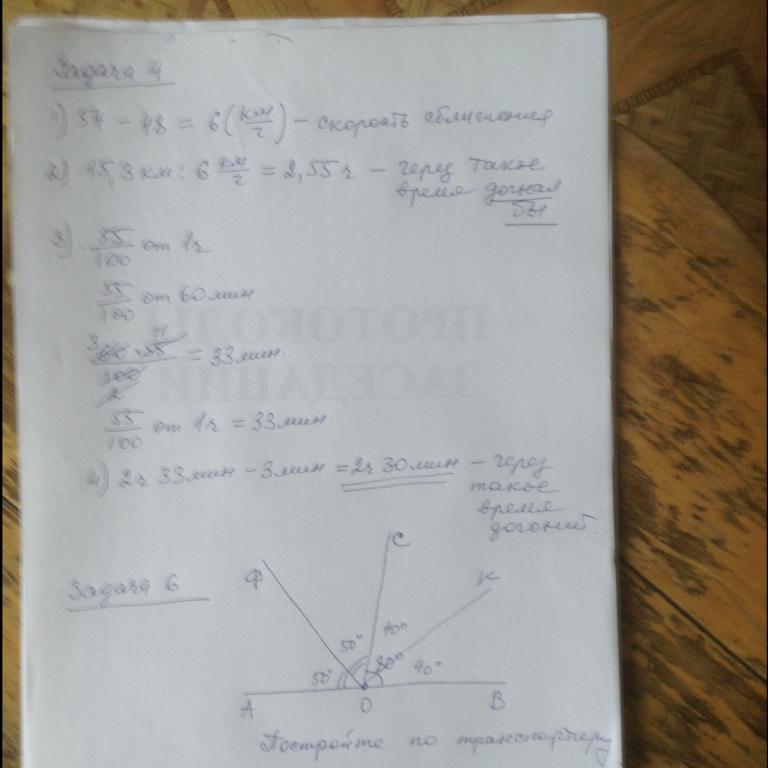 Задача 4
1) 54 - 48 = 6 (км/ч) - скорость сближения
2) 15,3 км : 6 км/ч = 2,55 ч - через такое
время догнал
бы
3) 55/100 от 1 ч
55/100 от 60 мин
3 11
60 · 55 / 100 = 33 мин.
2
55/100 от 1 ч = 33 мин.
4) 2 ч 33 мин - 3 мин = 2 ч 30 мин - через
такое
время
догонит.
ПРОТОКОЛЫ
ЗАСЕДАНИЙ
Задача 6
Ф
С
К
50°
40°
50°
80°
40°
А
О
В
Постройте по транспортиру